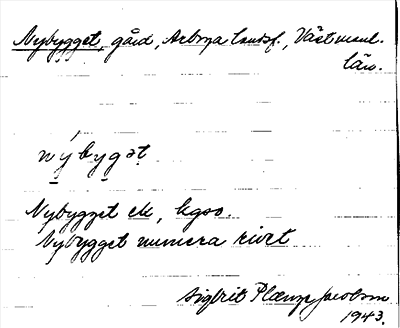 Nybygget, gård, Arboga landsf., Västmanl.
län.
nýbygət
Nybygget ek, kgso.
Nybygget numera rivet
Sigbrit Plænge Jacobson
1943.